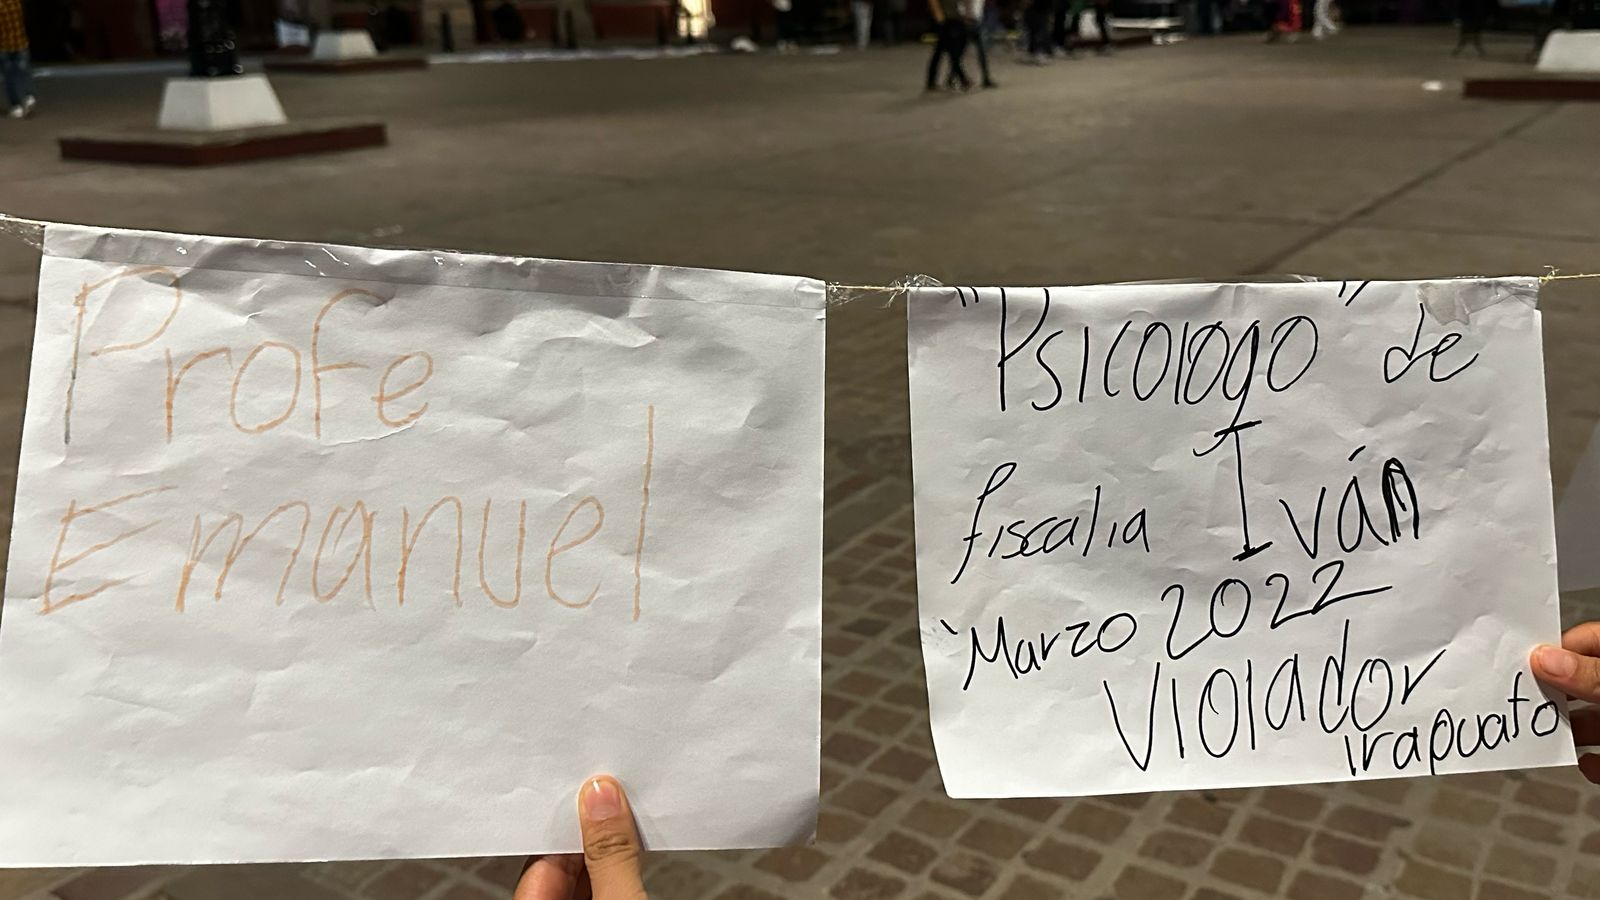 Profe
Emanuel
"Psicologo" de
fiscalia Iván
Marzo 2022
Violador
irapuato